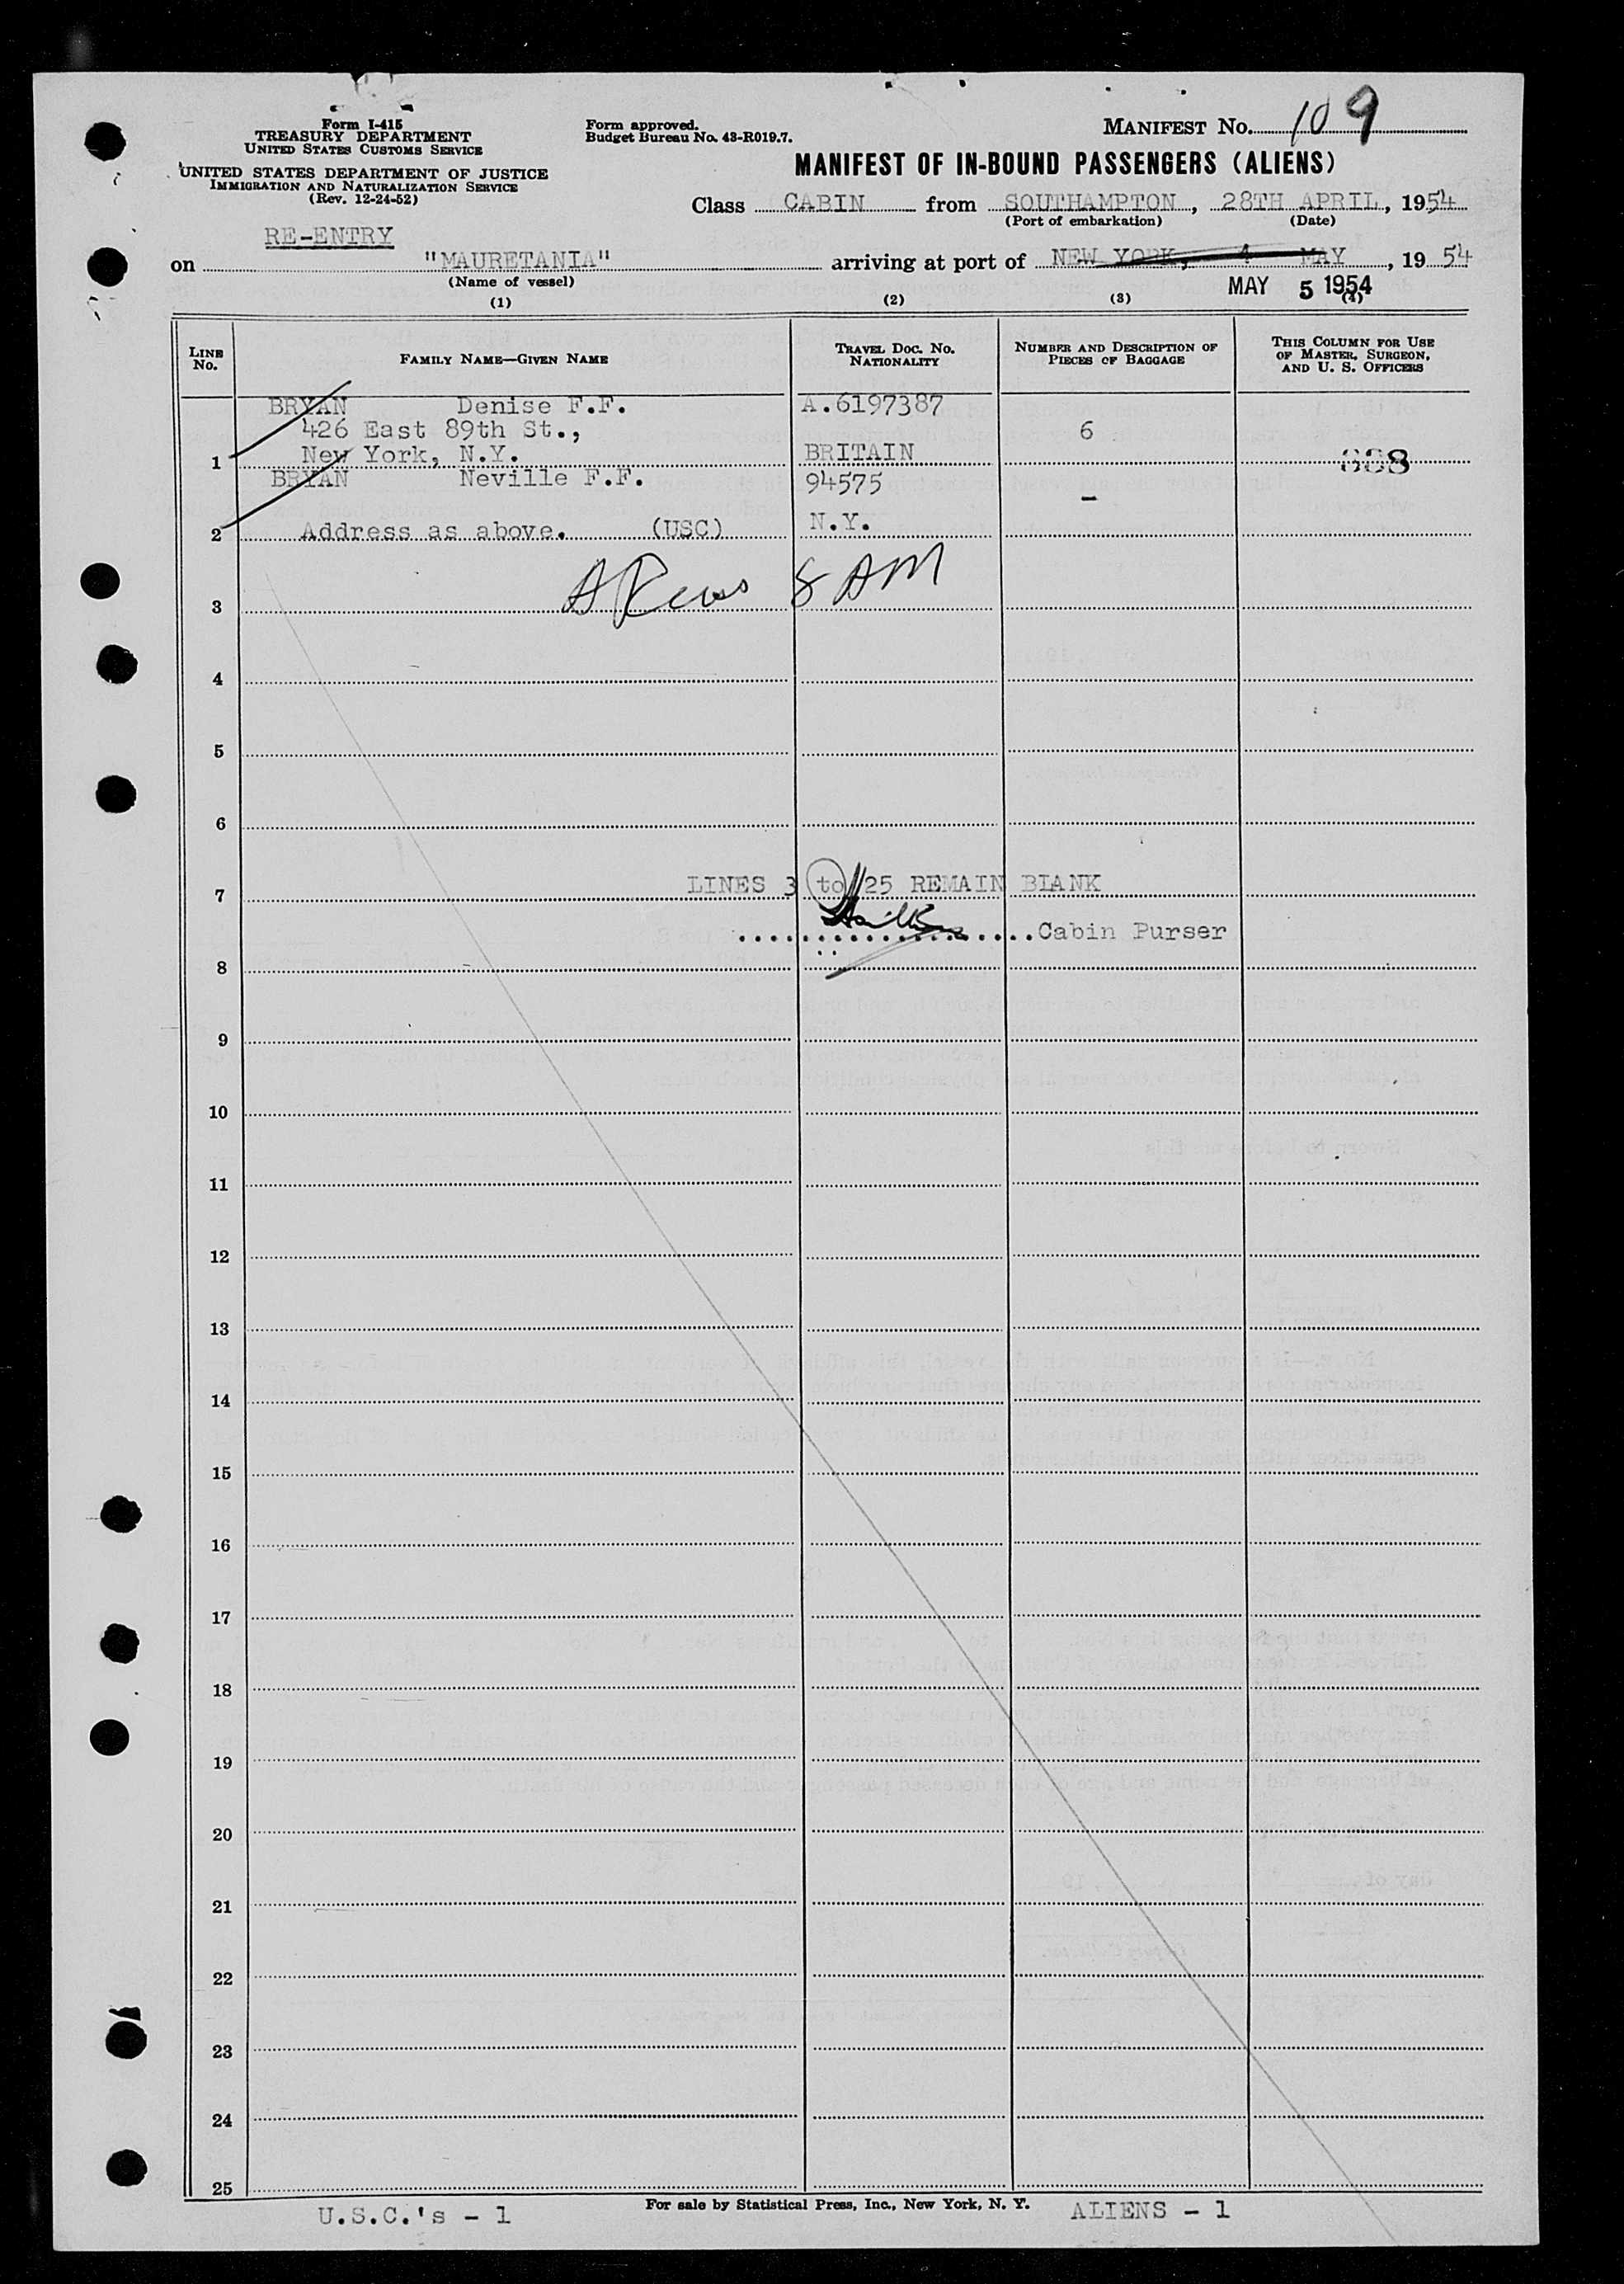 Form I-415
TREASURY DEPARTMENT
UNITED STATES CUSTOMS SERVICE
UNITED STATES DEPARTMENT OF JUSTICE
IMMIGRATION AND NATURALIZATION SERVICE
(Rev. 12-24-52)
Form approved.
Budget Bureau No. 43-R019.7.
MANIFEST No. 109
MANIFEST OF IN-BOUND PASSENGERS (ALIENS)
Class CABIN from SOUTHAMPTON, 28TH APRIL, 1954
(Port of embarkation) (Date)
RE-ENTRY
on "MAURETANIA" arriving at port of NEW YORK, 4 MAY, 1954
(Name of vessel)
MAY 5 1954
(1) (2) (3) (4)
LINE No. FAMILY NAME—GIVEN NAME TRAVEL DOC. No. NATIONALITY NUMBER AND DESCRIPTION OF PIECES OF BAGGAGE THIS COLUMN FOR USE OF MASTER, SURGEON, AND U. S. OFFICERS
BRYAN Denise F.F. A.6197387
426 East 89th St., 6
1 New York, N.Y. BRITAIN 888
BRYAN Neville F.F. 94575 –
2 Address as above. (USC) N.Y.
3 8 AM
4
5
6
7 LINES 3 to 25 REMAIN BLANK
Cabin Purser
8
9
10
11
12
13
14
15
16
17
18
19
20
21
22
23
24
25
For sale by Statistical Press, Inc., New York, N. Y.
U.S.C.'s - 1 ALIENS - 1